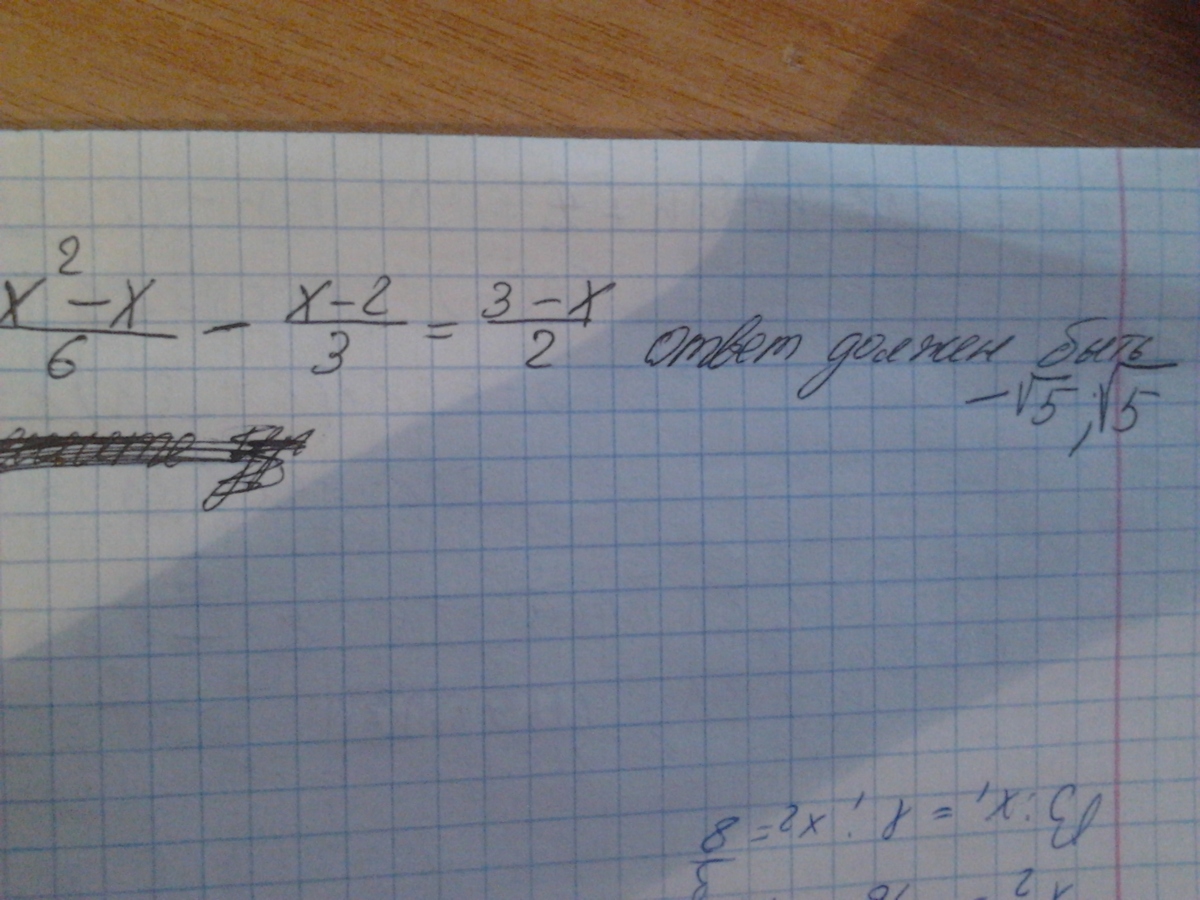 x² - x / 6 - x - 2 / 3 = 3 - x / 2 ответ должен быть
-√5; √5
В: x₁ = 1; x₂ = 8/3